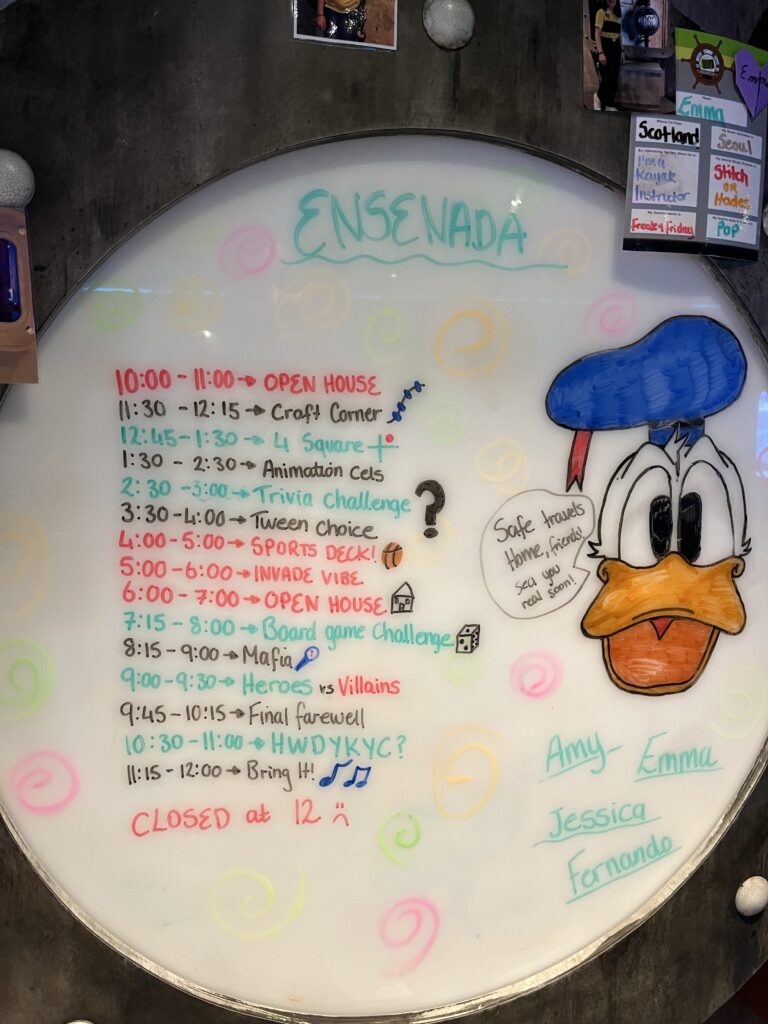 Emma
Emma
Scotland
Seoul
I'm a
Kayak
Instructor
Stitch
OR
Hades
Freaky Friday
Pop
ENSENADA
10:00 - 11:00 → OPEN HOUSE
11:30 - 12:15 → Craft Corner
12:45 - 1:30 → 4 Square
1:30 - 2:30 → Animation Cels
2:30 - 3:00 → Trivia Challenge ?
3:30 - 4:00 → Tween Choice
4:00 - 5:00 → SPORTS DECK!
5:00 - 6:00 → INVADE VIBE
6:00 - 7:00 → OPEN HOUSE
7:15 - 8:00 → Board game Challenge
8:15 - 9:00 → Mafia
9:00 - 9:30 → Heroes vs Villains
9:45 - 10:15 → Final farewell
10:30 - 11:00 → HWDYKYC?
11:15 - 12:00 → Bring It!
CLOSED at 12 :(
Safe travels
Home, friends!
sea you
real soon!
Amy - Emma
Jessica
Fernando